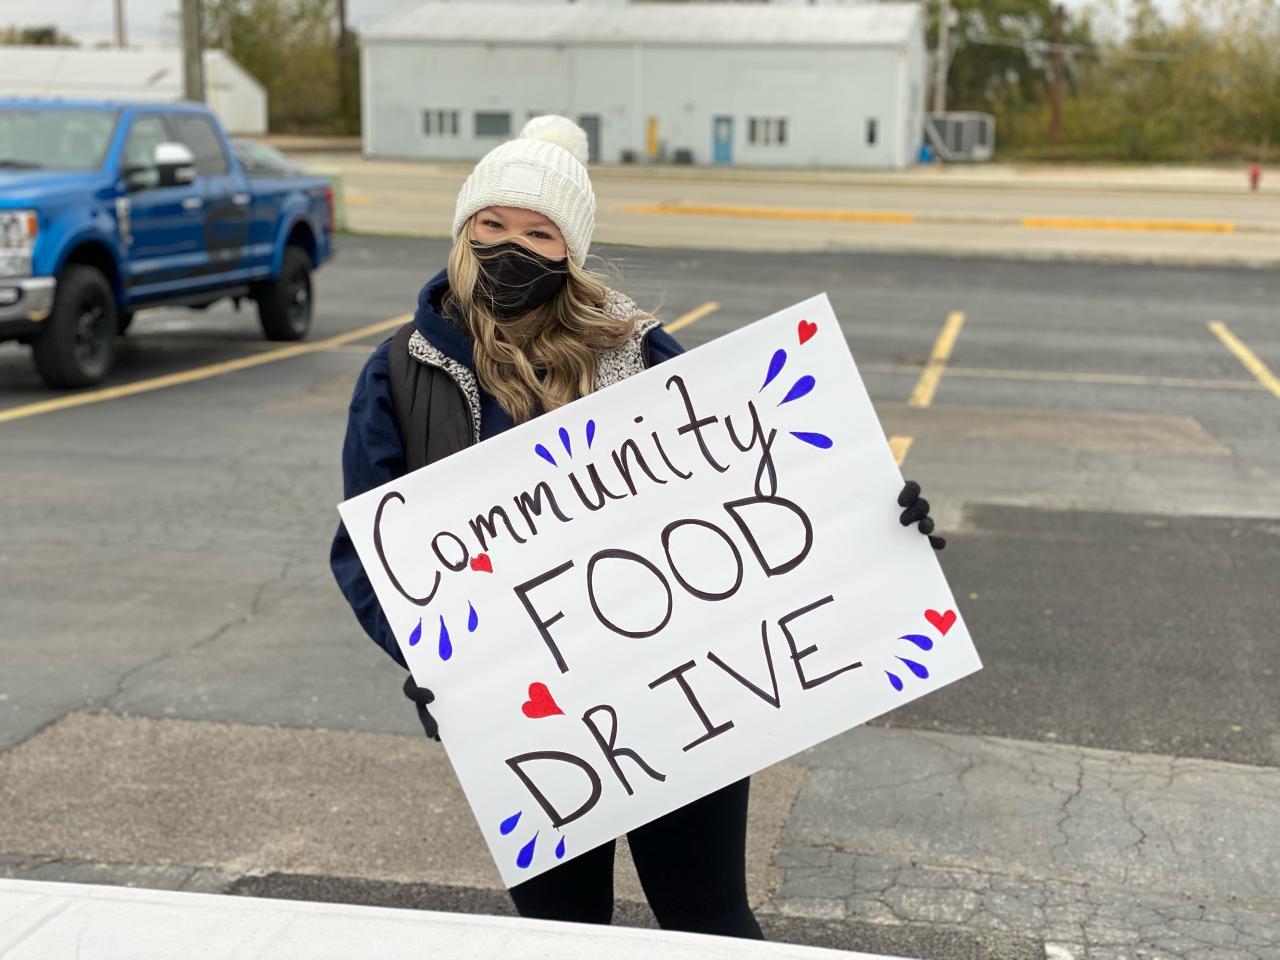 Community
FOOD
DRIVE